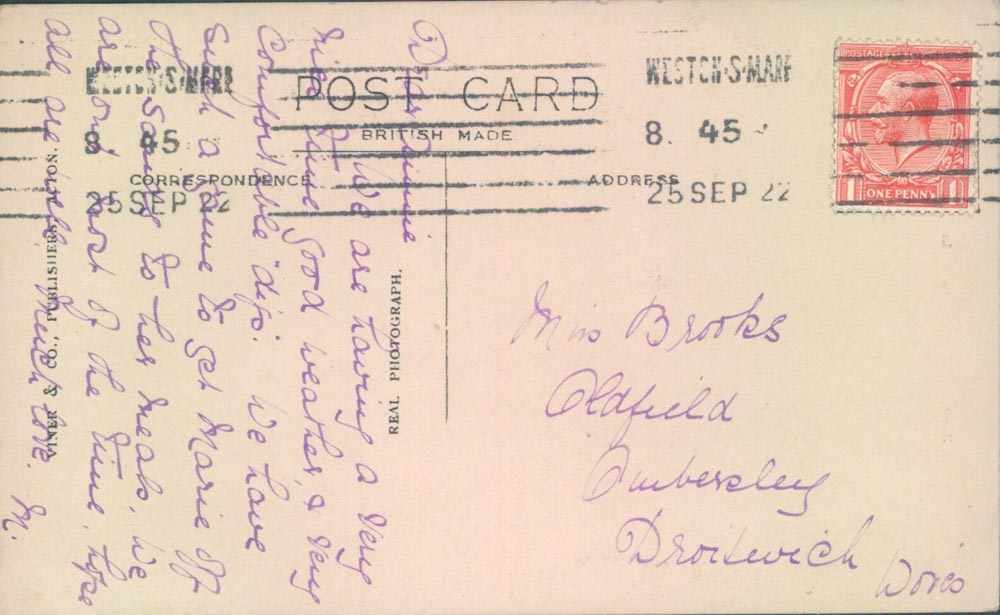 WESTON-S-MARE
8. 45
25 SEP 22
WESTON-S-MARE
8. 45
25 SEP 22
POSTAGE
1 ONE PENNY 1
POST CARD
BRITISH MADE
CORRESPONDENCE
ADDRESS
VINER & CO., PUBLISHERS, ACTON.
REAL PHOTOGRAPH.
Dear
We are having a very
nice time, good weather, & very
comfortable digs. We have
such a game to get Marie off
the sands to her meals. We
are out most of the time, hope
all are well. Much love. M.
Miss Brooks
Oldfield
Ombersley
Droitwich
Worcs